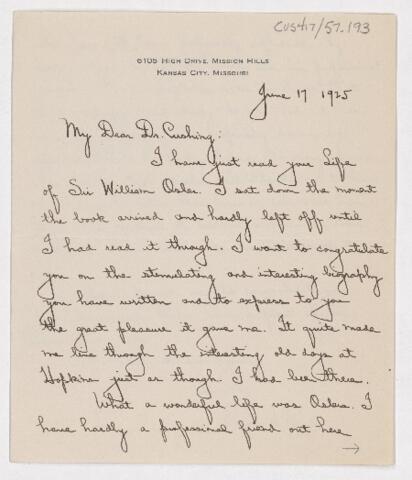 CUS417/57.193
6105 High Drive, Mission Hills
Kansas City, Missouri
June 17 1925
My Dear Dr. Cushing:
I have just read your Life
of Sir William Osler. I sat down the moment
the book arrived and hardly left off until
I had read it through. I want to congratulate
you on the stimulating and interesting biography
you have written and to express to you
the great pleasure it gave me. It quite made
me live through the interesting old days at
Hopkins just as though I had been there.
What a wonderful life was Oslers. I
have hardly a professional friend out here
→